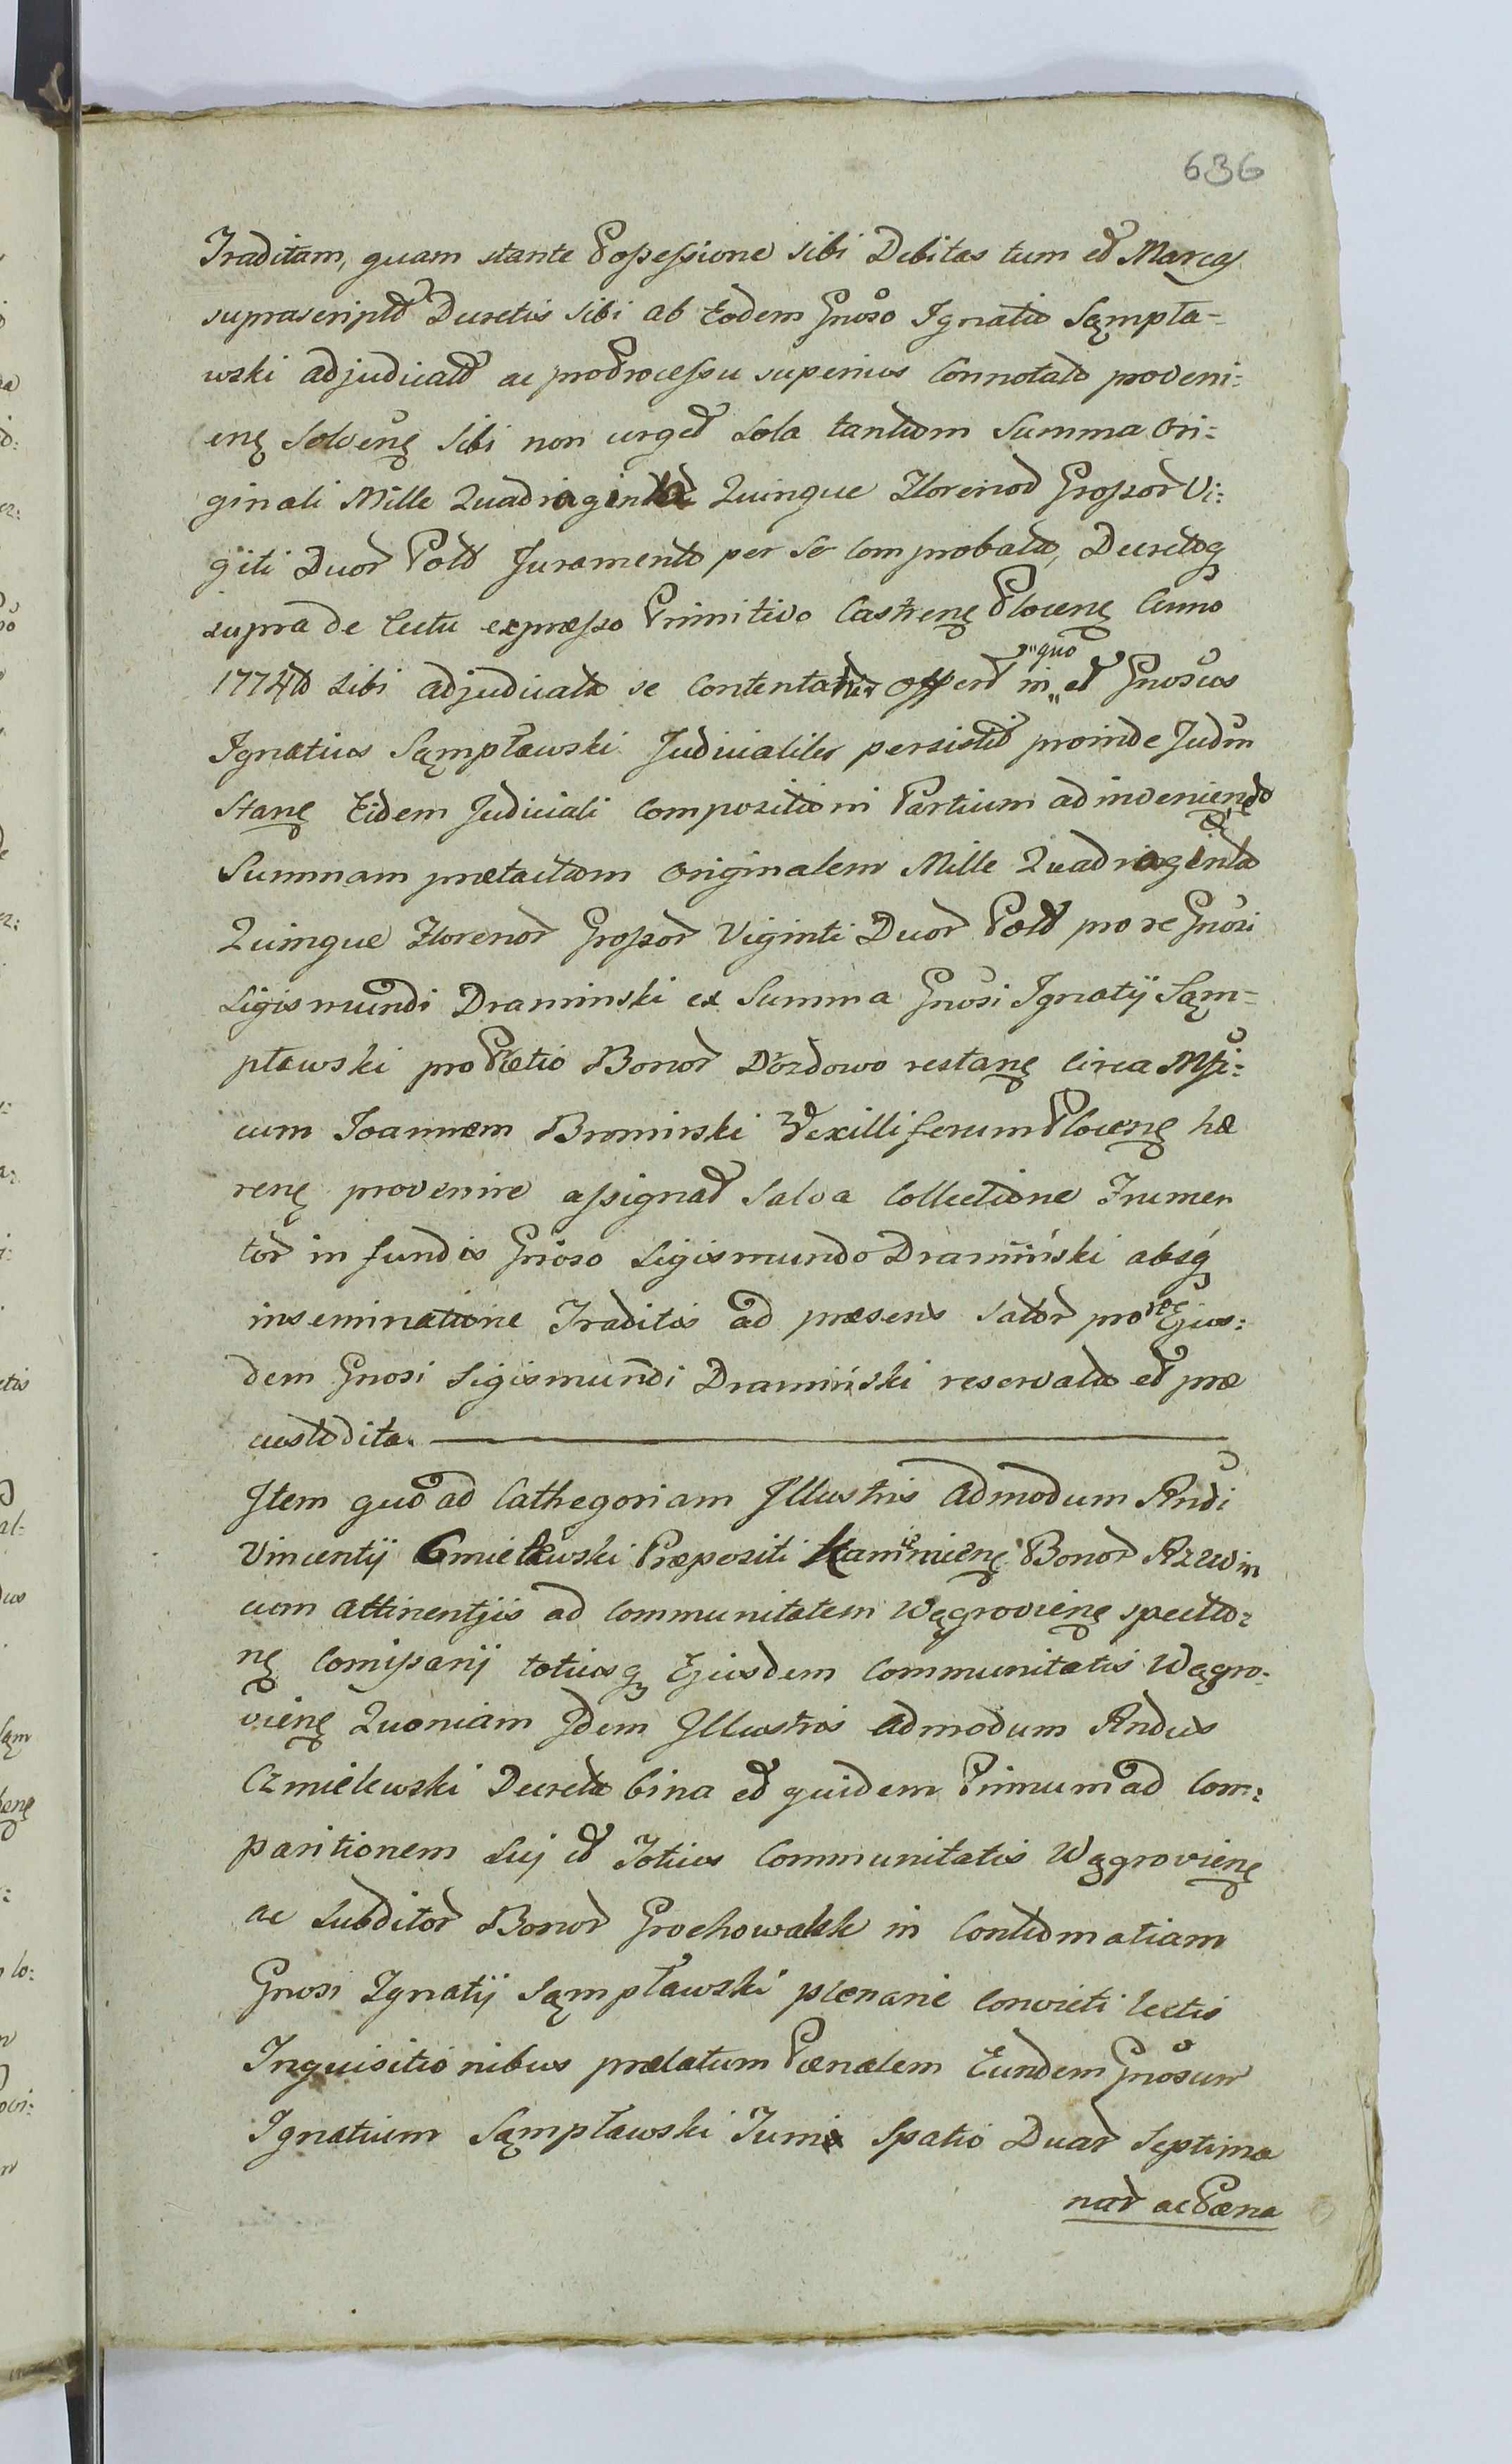 636
Traditam, quam stante Possessione sibi Debitas tum et Marcas
suprascript Decretis sibi ab Eodem Gnoso Ignatio Sąmpła-
wski adjudicat ac pro Processu superius Connotato proveni=
enę solvenę sibi non urget sola tantum Summa Ori=
ginali Mille Quadriagenta Quinque Florenor Grossor Vi=
giti Duor Pol Juramento per se Comprobata, Decretoq
supra de lectu expresso Primitivo Castrenę Plocenę Anno
1774to sibi adjudicata se Contentatur offert in "quo" et Gnosus
Ignatius Sąmpławski Judicialiter persistit proinde Judm
Stanę Eidem Judiciali Compositioni Partium adinvenienędo
Summam prætactam Originalem Mille Quadriagenta
Quinque Florenor Grossor Viginti Duor Pol pro re Gnosi
Sigismundi Draminski ex Summa Gnosi Ignatij Sąm=
pławski pro Prætio Bonor Dozdowo restanę circa Mfi=
cum Joannem Brominski Vexilliferum Plocenę hæ
renę provenire assignat Salva Collectione Frumen
tor in fundis Gnoso Sigismundo Dramiński absq
inseminatione Traditis ad præsens Sator pro re Ejus=
dem Gnosi Sigismundi Dramiński reservata et præ
custodita.
Item quo ad Cathegoriam Illustris Admodum Rndi
Vincentij Gmielewski Præpositi Kamienię Bonor Rzewin
cum attinentjis ad Communitatem Wągrovienę specta=
nę Comissarij totiusq Ejusdem Communitatis Wągro-
vienę Quoniam Idem Illustris admodum Rndus
Czmielewski Decreta bina et quidem Primum ad Com=
paritionem Sui et Totius Communitatis Wągrovienę
ac Subditor Bonor Grochowalsk in Contumatiam
Gnosi Ignatij Sąmpławski plenarie Convicti lectis
Inquisitionibus prælatum Pænalem Eundem Gnosum
Ignatium Sąmpławski Turris Spatio Duar Septima
nar ac Pæna